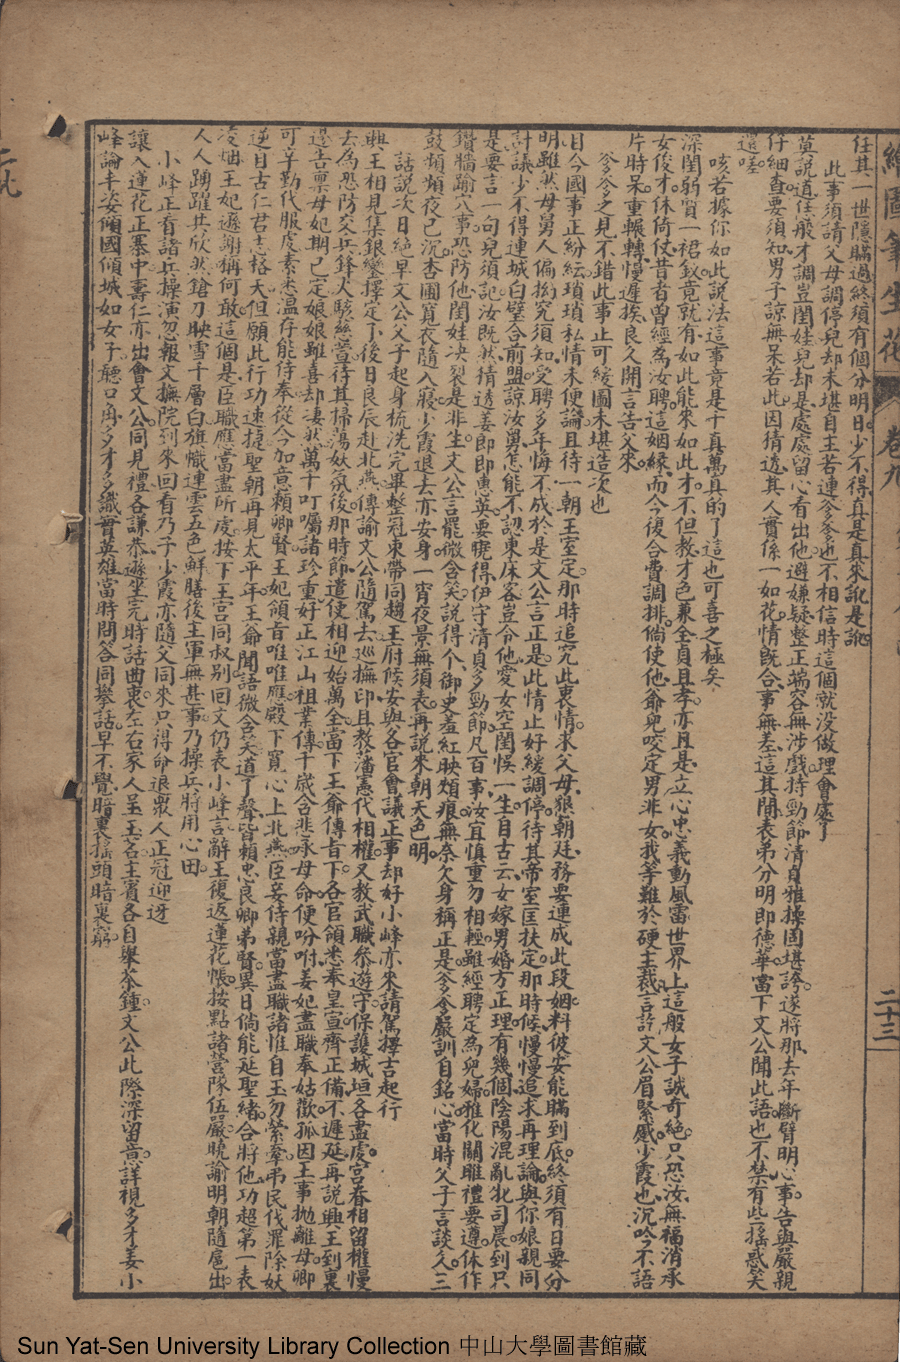 繪圖筆生花 卷九 二十三
任其一世隱瞞過終須有個分明日少不得真是真來訛是訛
此事須請父母調停兒却未堪自主若連爹爹也不相信時這個就没做理會處了
莫說道佳般才調豈閨娃兒却是處處留心看出他避嫌疑整正端容無涉戲持勁節清貞雅操固堪誇遂將那去年斷臂明心事告與嚴親
仔細查要須知男子諒無呆若此因猜透其人實係一如花情既合事無差這其間表弟分明即德華當下文公聞此語也不禁有些搖惑笑
還嗟
咳若據你如此説法這事竟是千真萬真的了這也可喜之極矣
深閨弱質一裙釵竟就有如此能來如此才不但教才色兼全貞且孝亦且是立心忠義動風雷世界上這般女子誠奇絶只恐汝無福消承
女俊才休倚仗昔者曾經為汝聘這姻緣而今復合費調排倘使他爺兒咬定男非女我等難於硬主裁言訖文公眉緊蹙少霞也沉吟不語
片時呆重輾轉慢遲挨良久開言告父來
爹爹之見不錯此事止可緩圖未堪造次也
目今國事正紛紜瑣瑣私情未便論且待一朝王室定那時追究此衷情求父母狠朝廷務要連成此段姻料彼安能瞞到底終須有日要分
明雖然母舅人偏拗究須知受聘多年悔不成於是文公言正是此情止好緩調停待其帝室匡扶定那時候慢慢追求再理論與你娘親同
計議少不得連城白璧合前盟諒汝舅怎能不認東床客豈令他愛女空閨悞一生自古云女嫁男婚方正理有幾個陰陽混亂牝司晨到只
是要言一句兒須記汝既然猜透姜郎即惠英要曉得伊守清貞多勁節凡百事汝宜慎重勿相輕雖經聘定為兒婦雅化關雎禮要遵休作
鑽牆踰穴事恐防他閨娃決裂是非生文公言罷微含笑説得个御史羞紅映頰痕無奈欠身稱正是爹爹嚴訓自銘心當時父子言談久三
鼓頻頻夜已沉香圃寬衣隨入寢少霞退去亦安身一宵夜景無須表再説來朝天色明
話說次日絶早文公父子起身梳洗完畢整冠束帶同趨王府候安與各官會議正事却好小峰亦來請駕擇吉起行
興王相見集銀鑾擇定下後日良辰赴北燕傳諭文公隨駕去巡撫印且教藩憲代相權又教武職叅遊守保護城垣各盡虔宮眷相留權慢
去為恐防交兵鋒火駭慈萱待其掃蕩妖氛後那時節遣使相迎始萬全當下王爺傳旨下各官領悉奉皇宣齊正備不遲延再説興王到裏
邊告禀母妃期已定娘娘雖喜却凄然萬千叮囑諸珍重好正江山祖業傳千歲含悲承母命便吩咐姜妃盡職奉姑歡孤因王事拋離母卿
可辛勤代服虔素悉温存能侍奉從今加意賴卿賢王妃領旨唯唯應殿下寬心上北燕臣妾侍親當盡職諸惟自玉勿縈牽弔民伐罪除妖
逆自古仁君志格天但願此行功速捷聖朝再見太平年王爺聞語微含笑道了聲皆賴忠良卿弟賢異日倘能延聖緒合將他功超第一表
凌烟王妃遜謝稱何敢這個是臣職應當盡所虔按下王宮同叔别回文仍表小峰言辭王復返蓮花帳按點諸營隊伍嚴曉諭明朝隨扈出
人人踴躍共欣然鎗刀映雪千層白旗幟連雲五色鮮膳後主軍無甚事乃操兵將用心田
小峰正看諸兵操演忽報文撫院到來回看乃子少霞亦隨父同來只得命退眾人正冠迎迓
讓入蓮花正寨中壽仁亦出會文公同見禮各謙恭遜坐完時話曲衷左右家人呈玉茗主賓各自舉茶鍾文公此際深留意詳視多才姜小
峰論丰姿傾國傾城如女子聽口角多才多識實英雄當時問答同拳話早不覺暗裏摇頭暗裏窮
Sun Yat-Sen University Library Collection 中山大學圖書館藏